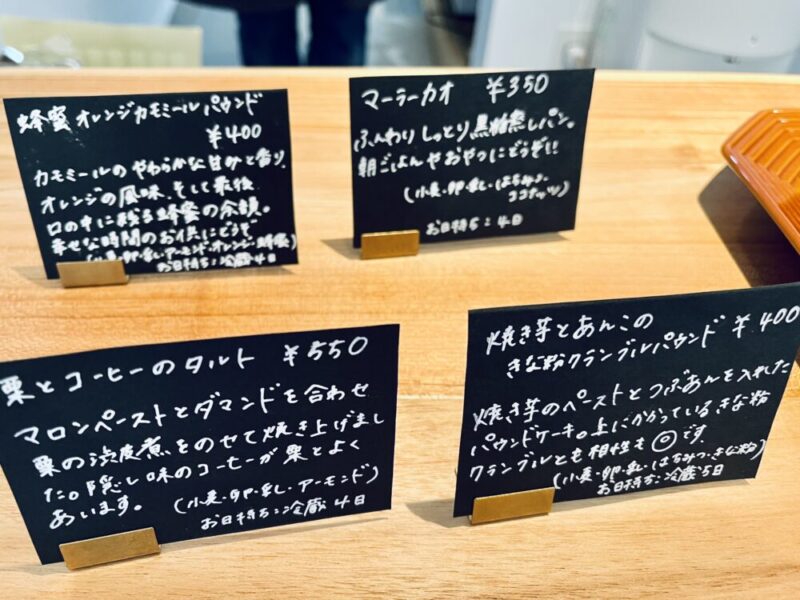 蜂蜜オレンジカモミールパウンド
¥400
カモミールのやわらかな甘みと香り、
オレンジの風味、そして最後
口の中に残る蜂蜜の余韻。
幸せな時間のお供にどうぞ
(小麦・卵・乳・アーモンド・オレンジ・蜂蜜)
お日持ち:冷蔵4日
マーラーカオ ¥350
ふんわりしっとり黒糖蒸しパン。
朝ごはんやおやつにどうぞ!!
(小麦・卵・乳・はちみつ・
ココナッツ)
お日持ち:4日
栗とコーヒーのタルト ¥550
マロンペーストとダマンドを合わせ
栗の渋皮煮をのせて焼き上げまし
た。隠し味のコーヒーが栗とよく
あいます。
(小麦・卵・乳・アーモンド)
お日持ち:冷蔵4日
焼き芋とあんこの
きな粉クランブルパウンド ¥400
焼き芋のペーストとつぶあんを入れた
パウンドケーキ。上にかかっているきな粉
クランブルとも相性も◎です。
(小麦・卵・乳・はちみつ・きな粉)
お日持ち:冷蔵5日